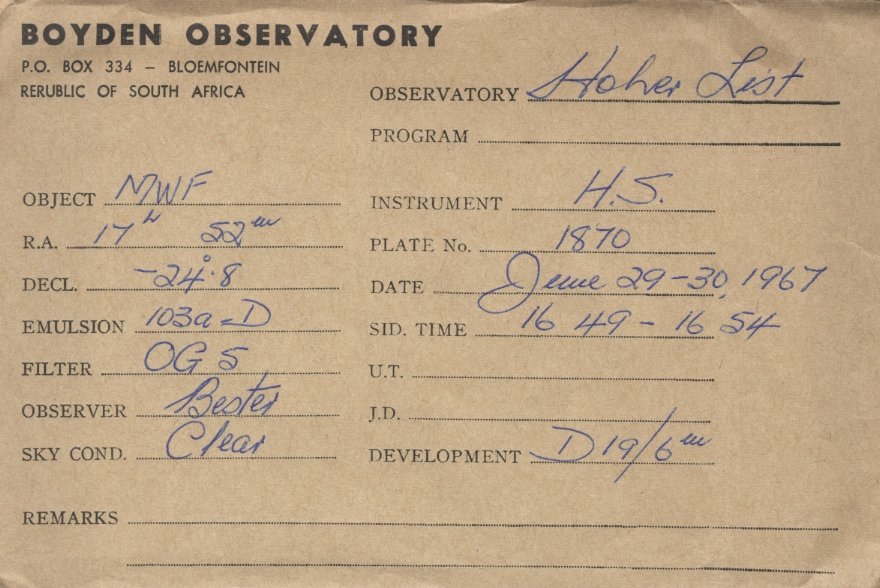 BOYDEN OBSERVATORY
P.O. BOX 334 – BLOEMFONTEIN
RERUBLIC OF SOUTH AFRICA
OBSERVATORY Hoher List
PROGRAM
OBJECT MWF
R.A. 17h 52m
DECL. -24°.8
EMULSION 103a-D
FILTER OG 5
OBSERVER Bester
SKY COND. Clear
INSTRUMENT H.S.
PLATE No. 1870
DATE June 29-30, 1967
SID. TIME 16 49 - 16 54
U.T.
J.D.
DEVELOPMENT D19/6m
REMARKS